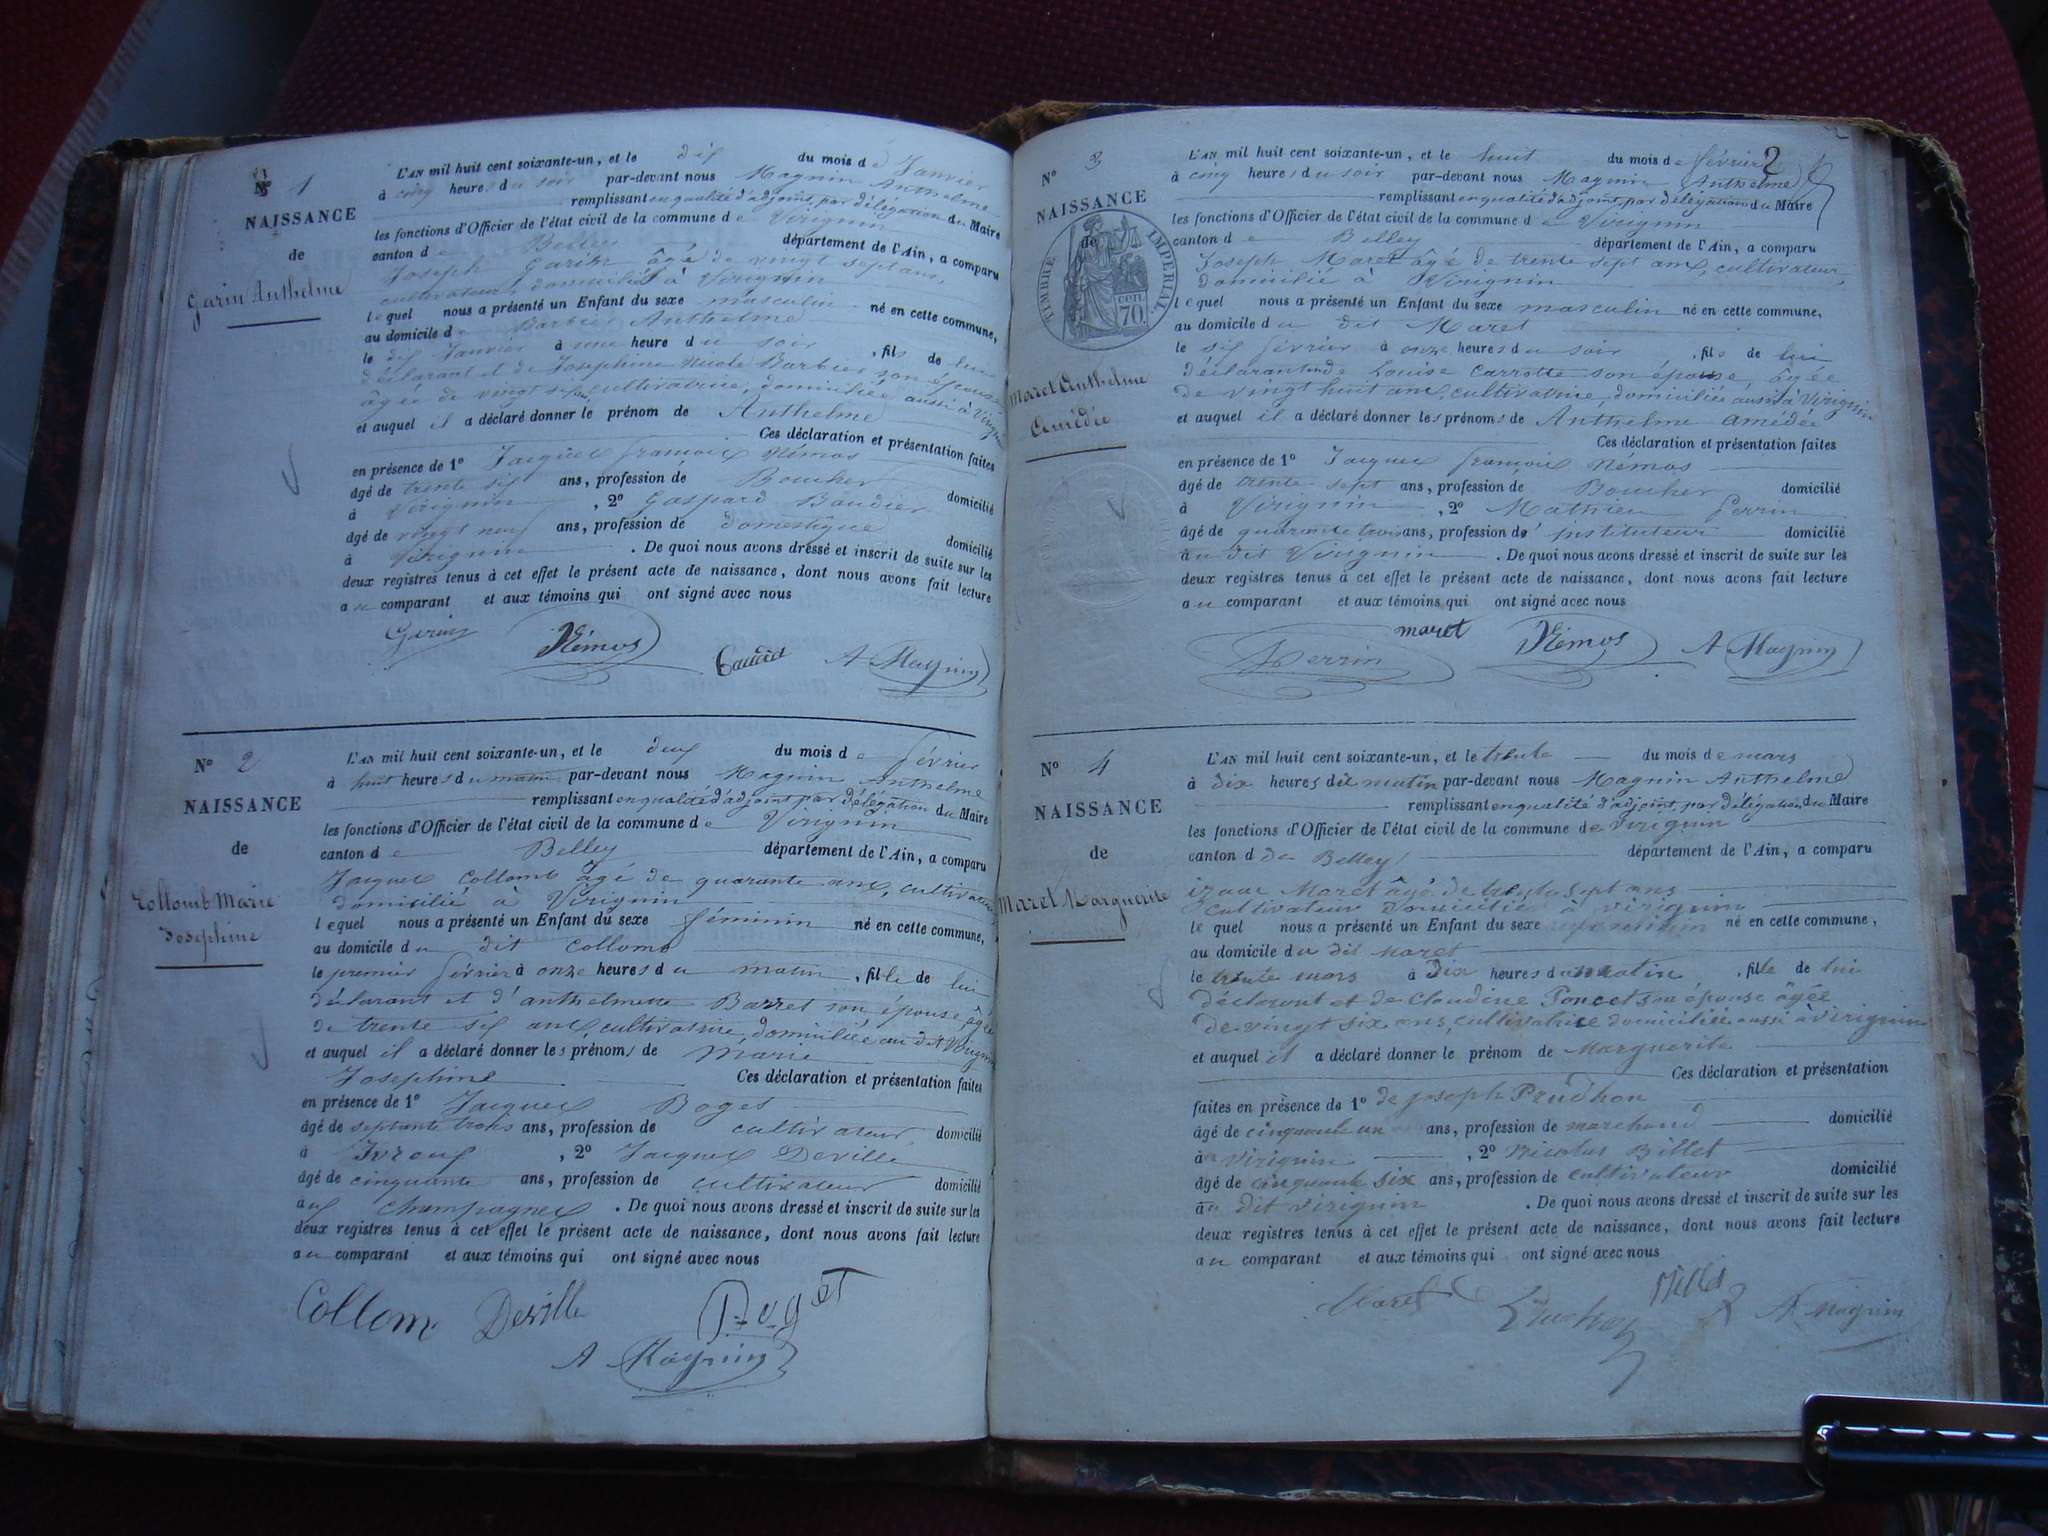 N° 1
NAISSANCE
de
Garin Anthelme
L'AN mil huit cent soixante-un, et le dix du mois de Janvier
à cinq heures du soir par-devant nous Magnin Anthelme
remplissant en qualité d'adjoint, par délégation du Maire
les fonctions d'Officier de l'état civil de la commune de Virignin
canton de Belley département de l'Ain, a comparu
Joseph Garin âgé de vingt sept ans,
cultivateur, domicilié à Virignin
lequel nous a présenté un Enfant du sexe masculin né en cette commune,
au domicile de Barbier Anthelme
le dix Janvier à une heure du soir, fils de lui
déclarant et de Josephine Nicole Barbier son épouse
âgée de vingt six ans, cultivatrice, domiciliée aussi à Virignin
et auquel il a déclaré donner le prénom de Anthelme
Ces déclaration et présentation faites
en présence de 1° Jacques françois Némos
âgé de trente six ans, profession de Boucher domicilié
à Virignin, 2° Gaspard Baudier
âgé de vingt neuf ans, profession de domestique domicilié
à Virignin. De quoi nous avons dressé et inscrit de suite sur les
deux registres tenus à cet effet le présent acte de naissance, dont nous avons fait lecture
au comparant et aux témoins qui ont signé avec nous
Garin Némos A Magnin
N° 2
NAISSANCE
de
Collomb Marie
Josephine
L'AN mil huit cent soixante-un, et le deux du mois de février
à huit heures du matin par-devant nous Magnin Anthelme
remplissant en qualité d'adjoint par délégation du Maire
les fonctions d'Officier de l'état civil de la commune de Virignin
canton de Belley département de l'Ain, a comparu
Jacques Collomb âgé de quarante ans, cultivateur
domicilié à Virignin
lequel nous a présenté un Enfant du sexe féminin né en cette commune,
au domicile du dit Collomb
le premier février à onze heures du matin, fille de lui
déclarant et d'anthelmette Barret son épouse, âgée
de trente six ans, cultivatrice, domiciliée au dit Virignin
et auquel il a déclaré donner les prénoms de Marie
Josephine Ces déclaration et présentation faites
en présence de 1° Jacques Boget
âgé de septante trois ans, profession de cultivateur domicilié
à, 2° Jacques Deville
âgé de cinquante ans, profession de cultivateur domicilié
à Champagne. De quoi nous avons dressé et inscrit de suite sur les
deux registres tenus à cet effet le présent acte de naissance, dont nous avons fait lecture
au comparant et aux témoins qui ont signé avec nous
Collom Deville Boget
A Magnin
2
N° 3
NAISSANCE
de
TIMBRE IMPERIAL
70 cen
Maret Anthelme
Amédée
L'AN mil huit cent soixante-un, et le huit du mois de février
à cinq heures du soir par-devant nous Magnin Anthelme
remplissant en qualité d'adjoint, par délégation du Maire
les fonctions d'Officier de l'état civil de la commune de Virignin
canton de Belley département de l'Ain, a comparu
Joseph Maret âgé de trente sept ans, cultivateur,
domicilié à Virignin
lequel nous a présenté un Enfant du sexe masculin né en cette commune,
au domicile du dit Maret
le six février à onze heures du soir, fils de lui
déclarant et de Louise Carrotte son épouse, âgée
de vingt huit ans, cultivatrice, domiciliée aussi à Virignin
et auquel il a déclaré donner les prénoms de Anthelme amédée
Ces déclaration et présentation faites
en présence de 1° Jacques françois Némos
âgé de trente sept ans, profession de Boucher domicilié
à Virignin, 2° Mathieu Perrin
âgé de quarante trois ans, profession d'instituteur domicilié
au dit Virignin. De quoi nous avons dressé et inscrit de suite sur les
deux registres tenus à cet effet le présent acte de naissance, dont nous avons fait lecture
au comparant et aux témoins qui ont signé avec nous
Perrin maret Némos A Magnin
N° 4
NAISSANCE
de
Maret Marguerite
L'AN mil huit cent soixante-un, et le trente du mois de mars
à dix heures du matin par-devant nous Magnin Anthelme
remplissant en qualité d'adjoint, par délégation du Maire
les fonctions d'Officier de l'état civil de la commune de Virignin
canton d de Belley département de l'Ain, a comparu
izaac Maret âgé de trente sept ans
cultivateur domicilié à virignin
lequel nous a présenté un Enfant du sexe féminin né en cette commune,
au domicile du dit Maret
le trente mars à dix heures du matin, fille de lui
déclarant et de Claudine Poncet son épouse âgée
de vingt six ans, cultivatrice domiciliée aussi à virignin
et auquel il a déclaré donner le prénom de Marguerite
Ces déclaration et présentation
faites en présence de 1° de joseph Prudhon
âgé de cinquante un ans, profession de marchand domicilié
à virignin, 2° Nicolas Billet
âgé de cinquante six ans, profession de cultivateur domicilié
au dit virignin. De quoi nous avons dressé et inscrit de suite sur les
deux registres tenus à cet effet le présent acte de naissance, dont nous avons fait lecture
au comparant et aux témoins qui ont signé avec nous
Maret A Magnin